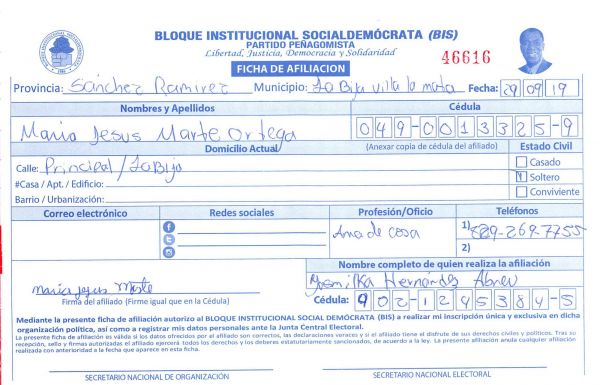 BLOQUE INSTITUCIONAL SOCIALDEMÓCRATA (BIS)
PARTIDO PEÑAGOMISTA
Libertad, Justicia, Democracia y Solidaridad
46616
FICHA DE AFILIACION
Provincia: Sánchez Ramirez Municipio: La Bija villa la mata Fecha: 29 09 19
Nombres y Apellidos Cédula
Maria Jesus Marte Ortega 049-0013325-9
Domicilio Actual (Anexar copia de cédula del afiliado) Estado Civil
Calle: Principal / La Bija Casado
#Casa / Apt. / Edificio: Soltero
Barrio / Urbanización: Conviviente
Correo electrónico Redes sociales Profesión/Oficio Teléfonos
Ama de casa 1) 829-269-7755
2)
Nombre completo de quien realiza la afiliación
maria jesus Marte Hernández Abreu
Firma del afiliado (Firme igual que en la Cédula) Cédula: 402-1245384-5
Mediante la presente ficha de afiliación autorizo al BLOQUE INSTITUCIONAL SOCIAL DEMÓCRATA (BIS) a realizar mi inscripción única y exclusiva en dicha
organización política, así como a registrar mis datos personales ante la Junta Central Electoral.
La presente ficha de afiliación es válida si los datos ofrecidos por el afiliado son correctos, las declaraciones veraces y si el afiliado tiene el disfrute de sus derechos civiles y políticos. Tras su
recepción, sello y firmas autorizadas el afiliado ejercerá todos los derechos y los deberes estatutariamente sancionados, de acuerdo a la ley. La presente afiliación anula cualquier afiliación
realizada con anterioridad a la fecha que aparece en esta ficha.
SECRETARIO NACIONAL DE ORGANIZACIÓN SECRETARIO NACIONAL ELECTORAL